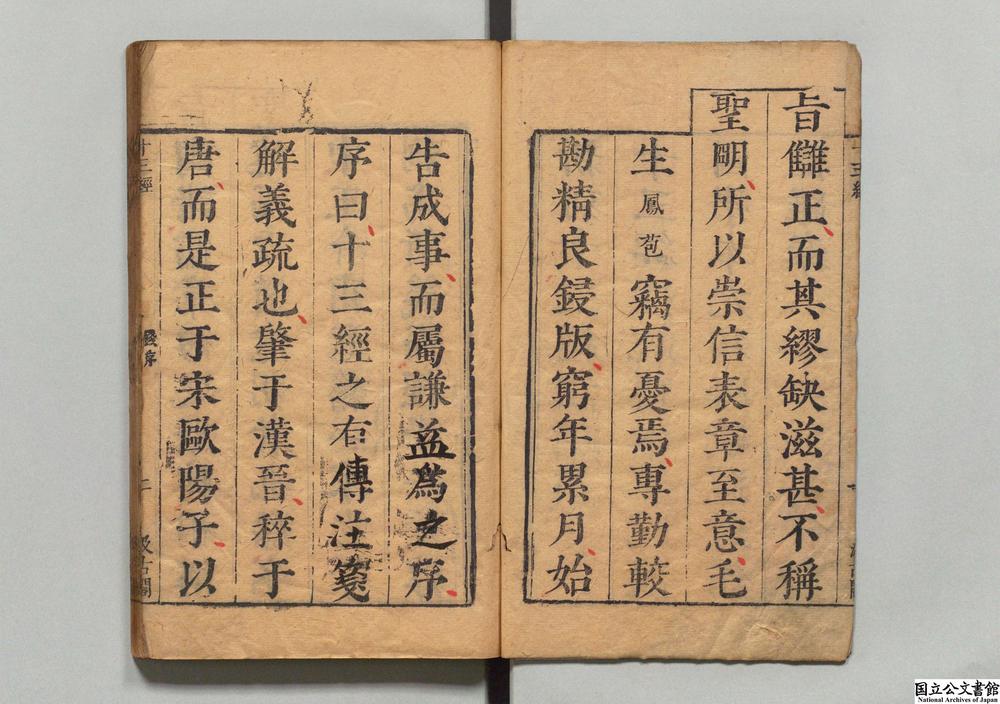 旨讎正而其繆缺滋甚不稱
聖明所以崇信表章至意毛
生鳳苞竊有憂焉專勤較
勘精良鋟版窮年累月始
告成事而屬謙益為之序
序曰十三經之有傳注箋
解義疏也肇于漢晉稡于
唐而是正于宋歐陽子以
十三經
錢序
二
汲古閣
国立公文書館
National Archives of Japan